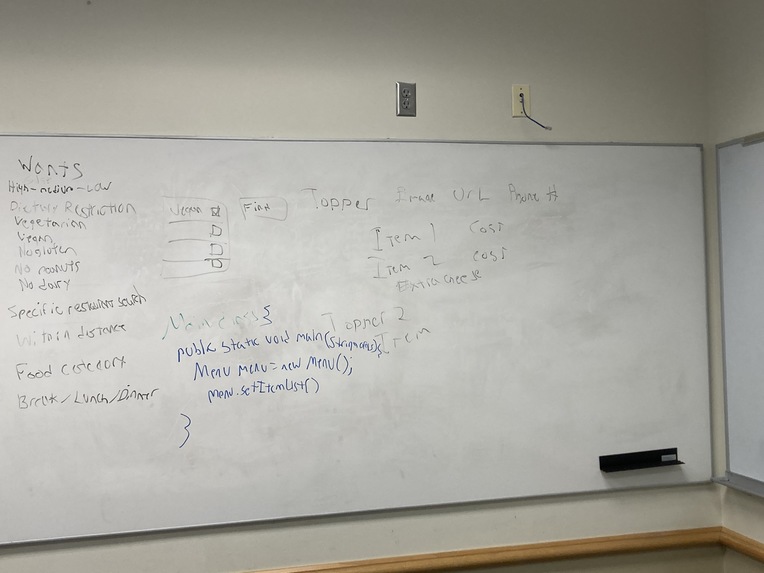 Wants
High-medium-Low
Dietary Restriction
Vegetarian
Vegan
No gluten
No peanuts
No dairy
Specific restaurant search
Within distance
Food category
Break/Lunch/Dinner
Vegan
Find
Topper Image URL Phone #
Item 1 Cost
Item 2 Cost
Extra cheese
Topper 2
Item
Main class {
public static void main(String args){
Menu menu = new Menu();
menu.setItemList()
}